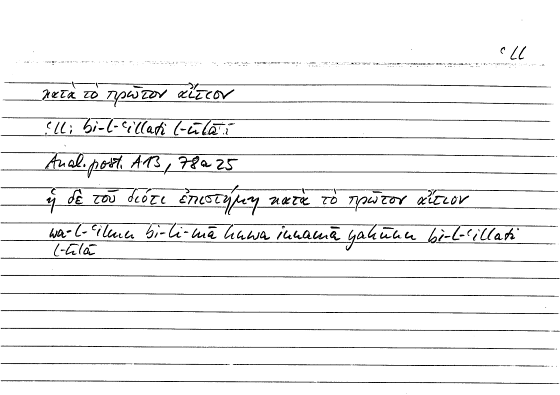 ʿll
κατὰ τὸ πρῶτον αἴτιον
ʿll: bi-l-ʿillati l-ūlā:
Anal. post. A 13, 78a25
ἡ δὲ τοῦ διότι ἐπιστήμη κατὰ τὸ πρῶτον αἴτιον
wa-l-ʿilmu bi-li-mā huwa innamā yakūnu bi-l-ʿillati
l-ūlā